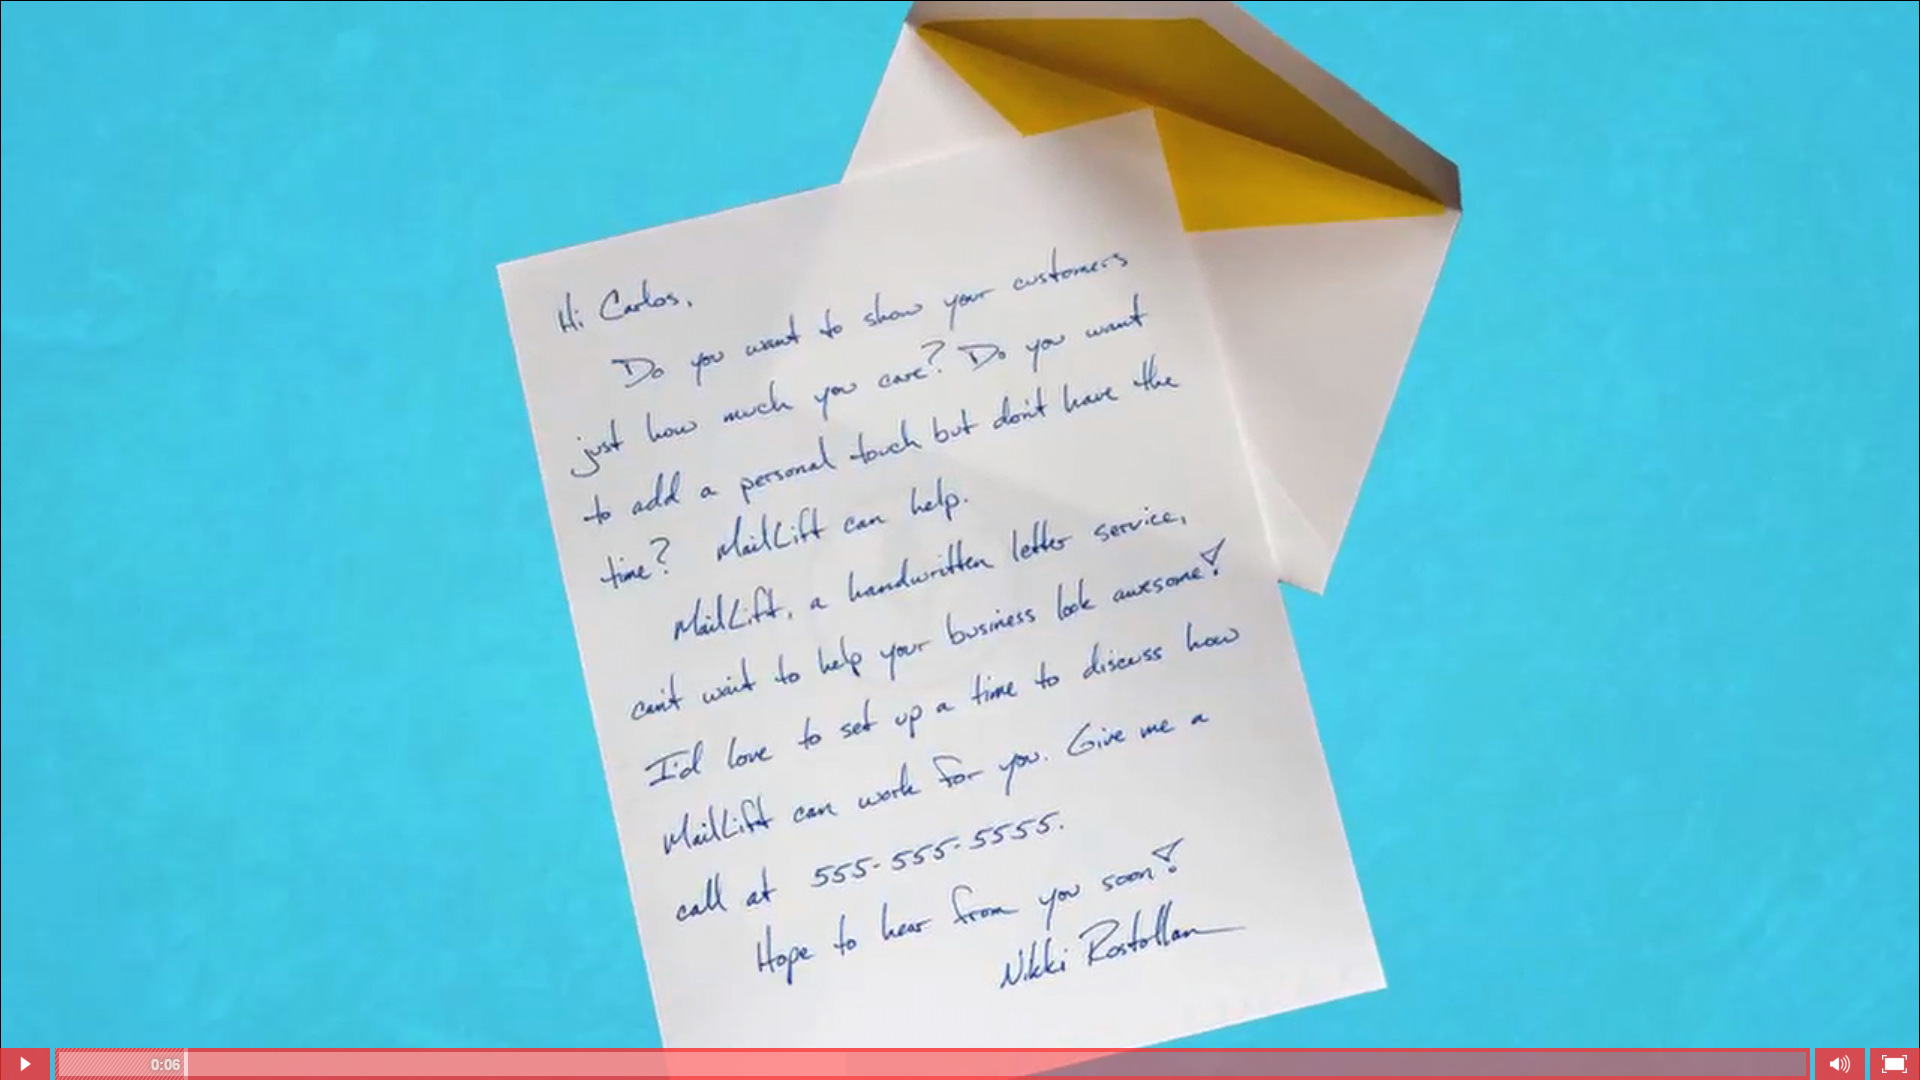 Hi Carlos,
Do you want to show your customers
just how much you care? Do you want
to add a personal touch but don't have the
time? MailLift can help.
MailLift, a handwritten letter service,
can't wait to help your business look awesome!
I'd love to set up a time to discuss how
MailLift can work for you. Give me a
call at 555-555-5555.
Hope to hear from you soon!
Nikki Rostollan
0:06